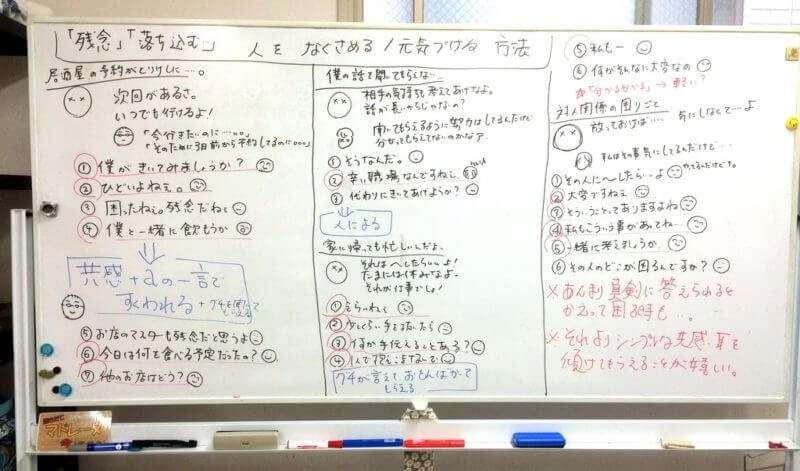 「残念」「落ち込む…」 人を なぐさめる/元気づける 方法
居酒屋の予約がとりけしに…。
次回があるさ。
いつでも行けるよ!
「今行きたいのに……。。
「そのために3日前から予約してるのに。。。
① 僕がきいてみましょうか?
② ひどいよねぇ。
③ 困ったねぇ。残念だねぇ
④ 僕と一緒に飲もうか
共感 + αの一言で
すくわれる + グチを言って
もらえる
⑤ お店のマスターも残念だと思うよ
⑥ 今日は何を食べる予定だったの?
⑦ 他のお店はどう?
僕の話を聞いてもらえない…
相手の気持ちも考えてあげなよ。
話が長いからじゃないの?
聞いてもらえるように努力はしてるんだけど
分かってもらえてないのかなァ
① そうなんだ。
② 辛い職場なんですねぇ
③ 代わりにきいてあげようか?
人による
家に帰っても忙しいんだよ。
それは〜したらいいよ!
たまには休みなよ。
それが仕事でしょ!
① えらいねぇ
② 少しくらい手をぬいたら
③ 何か手伝えることある?
④ 1人で抱えこまないで
グチが言えて、おもんぱかって
もらえる
⑤ 私もー
⑥ 何がそんなに大変なの
☆「分かる分かる」→ 軽い?
対人関係の困りごと
放っておけば…… 気にしなくて…よ
私はその事気にしてるんだけど…
① その人に〜したら…よ
② 大変ですねぇ
③ そういうことってありますよね
④ 私もこういう事があってね…
⑤ 一緒に考えましょうか
⑥ その人のどこが困るんですか?
※ あんまり真剣に答えられると
かえって困る時も…。
※ それよりシンプルな共感・耳を
傾けてもらえることが嬉しい。
マドレーヌ